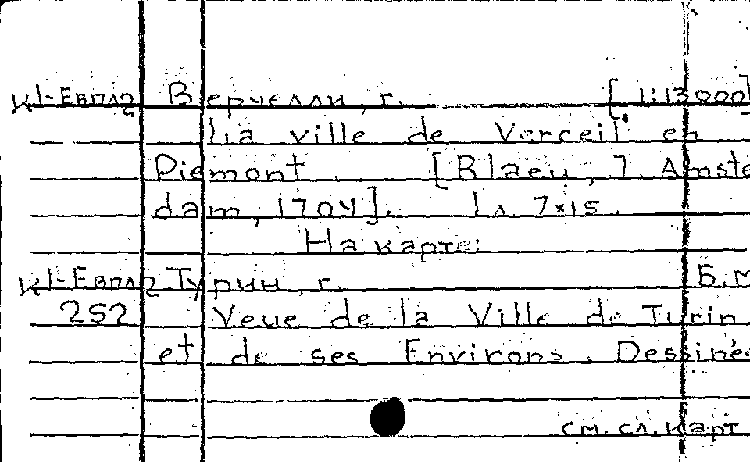 К1-Европ Верчелли, г. [1:13000]
La ville de Verceil en
Piemont. [Blaeu, 7. Amste
dam, 1704]. 1 л. 7×15.
На карте:
К1-Европ Турин, г. Б.м
252 Veue de la Ville de Turin
et de ses Environs. Dessinée
см. сл. карт